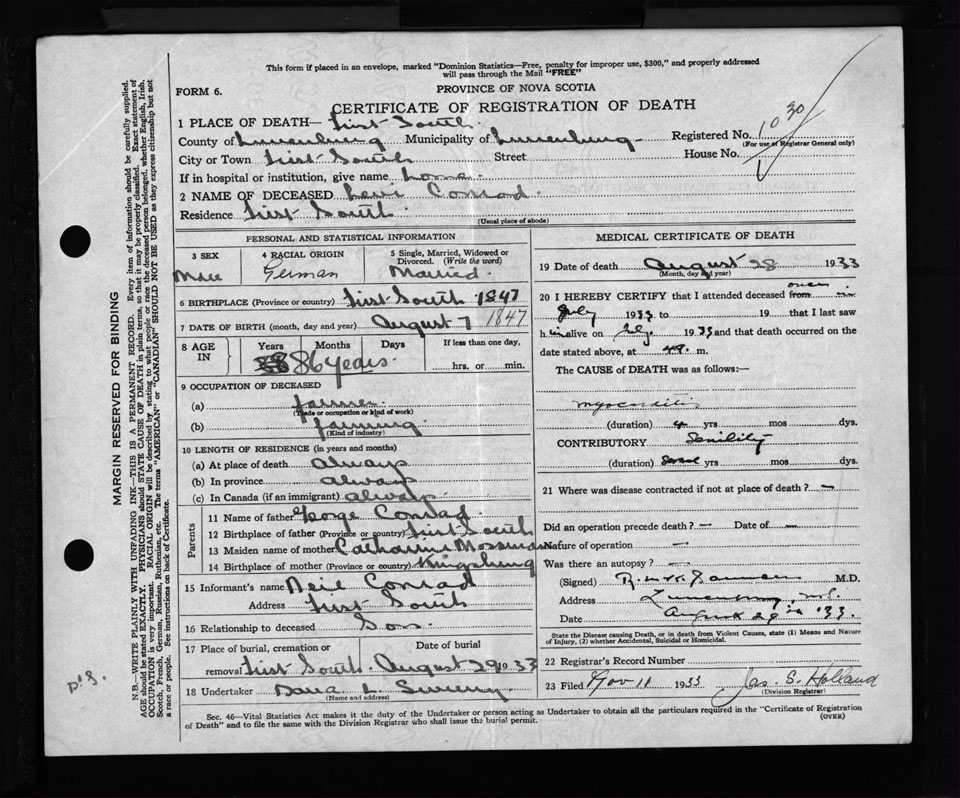 This form if placed in an envelope, marked "Dominion Statistics—Free, penalty for improper use, $300," and properly addressed
will pass through the Mail "FREE"
FORM 6.
PROVINCE OF NOVA SCOTIA
CERTIFICATE OF REGISTRATION OF DEATH
1 PLACE OF DEATH— First South
County of Lunenburg Municipality of Lunenburg Registered No. 1030
(For use of Registrar General only)
City or Town First South Street House No.
If in hospital or institution, give name home
2 NAME OF DECEASED Levi Conrad
Residence First South
(Usual place of abode)
PERSONAL AND STATISTICAL INFORMATION
3 SEX
Male
4 RACIAL ORIGIN
German
5 Single, Married, Widowed or
Divorced. (Write the word)
Married
6 BIRTHPLACE (Province or country) First South 1847
7 DATE OF BIRTH (month, day and year) August 7 1847
8 AGE IN
Years Months Days
86 years
If less than one day,
hrs. or min.
9 OCCUPATION OF DECEASED
(a) farmer
(Trade or occupation or kind of work)
(b) farming
(Kind of industry)
10 LENGTH OF RESIDENCE (in years and months)
(a) At place of death always
(b) In province always
(c) In Canada (if an immigrant) always
Parents
11 Name of father George Conrad
12 Birthplace of father (Province or country) First South
13 Maiden name of mother Catharine Mossman
14 Birthplace of mother (Province or country) Kingsburg
15 Informant's name Neil Conrad
Address First South
16 Relationship to deceased Son
17 Place of burial, cremation or Date of burial
removal First South August 29 1933
18 Undertaker L.
(Name and address)
MEDICAL CERTIFICATE OF DEATH
19 Date of death August 28 1933
(Month, day and year)
20 I HEREBY CERTIFY that I attended deceased from once in
July 1933 to 19 that I last saw
h im alive on July 1933 and that death occurred on
date stated above, at m.
The CAUSE of DEATH was as follows:—
myocarditis
(duration) 4 yrs mos dys.
CONTRIBUTORY Senility
(duration) some yrs mos dys.
21 Where was disease contracted if not at place of death? —
Did an operation precede death? — Date of —
Nature of operation —
Was there an autopsy? —
(Signed) M.D.
Address Lunenburg, N.S.
Date August 29th '33.
State the Disease causing Death, or in death from Violent Causes, state (1) Means and Nature
of Injury, (2) whether Accidental, Suicidal or Homicidal.
22 Registrar's Record Number
23 Filed Nov 10 1933 Jas. S. Holland
(Division Registrar)
Sec. 46—Vital Statistics Act makes it the duty of the Undertaker or person acting as Undertaker to obtain all the particulars required in the "Certificate of Registration
of Death" and to file the same with the Division Registrar who shall issue the burial permit.
(OVER)
MARGIN RESERVED FOR BINDING
N.B.—WRITE PLAINLY WITH UNFADING INK—THIS IS A PERMANENT RECORD. Every item of information should be carefully supplied.
AGE should be stated EXACTLY. PHYSICIANS should STATE CAUSE OF DEATH in plain terms, so that it may be properly classified. Exact statement of
OCCUPATION is very important. RACIAL ORIGIN will be described by stating to what people or race the deceased person belonged, whether English, Irish,
Scotch, French, German, Russian, Ruthenian, etc. The terms "AMERICAN" or "CANADIAN" SHOULD NOT BE USED as they express citizenship but not
a race or people. See instructions on back of Certificate.